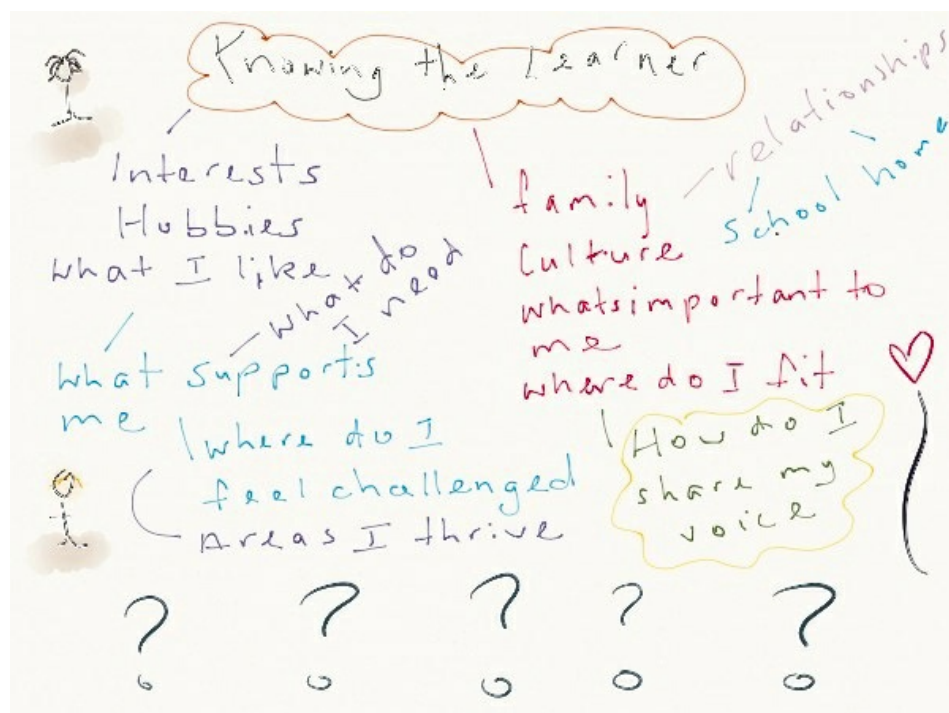 Knowing the Learner
Interests
Hobbies
what I like
what do
I need
what supports
me
where do I
feel challenged
Areas I thrive
family
Culture
whatsimportant to
me
where do I fit
relationships
school home
How do I
share my
voice
? ? ? ? ?